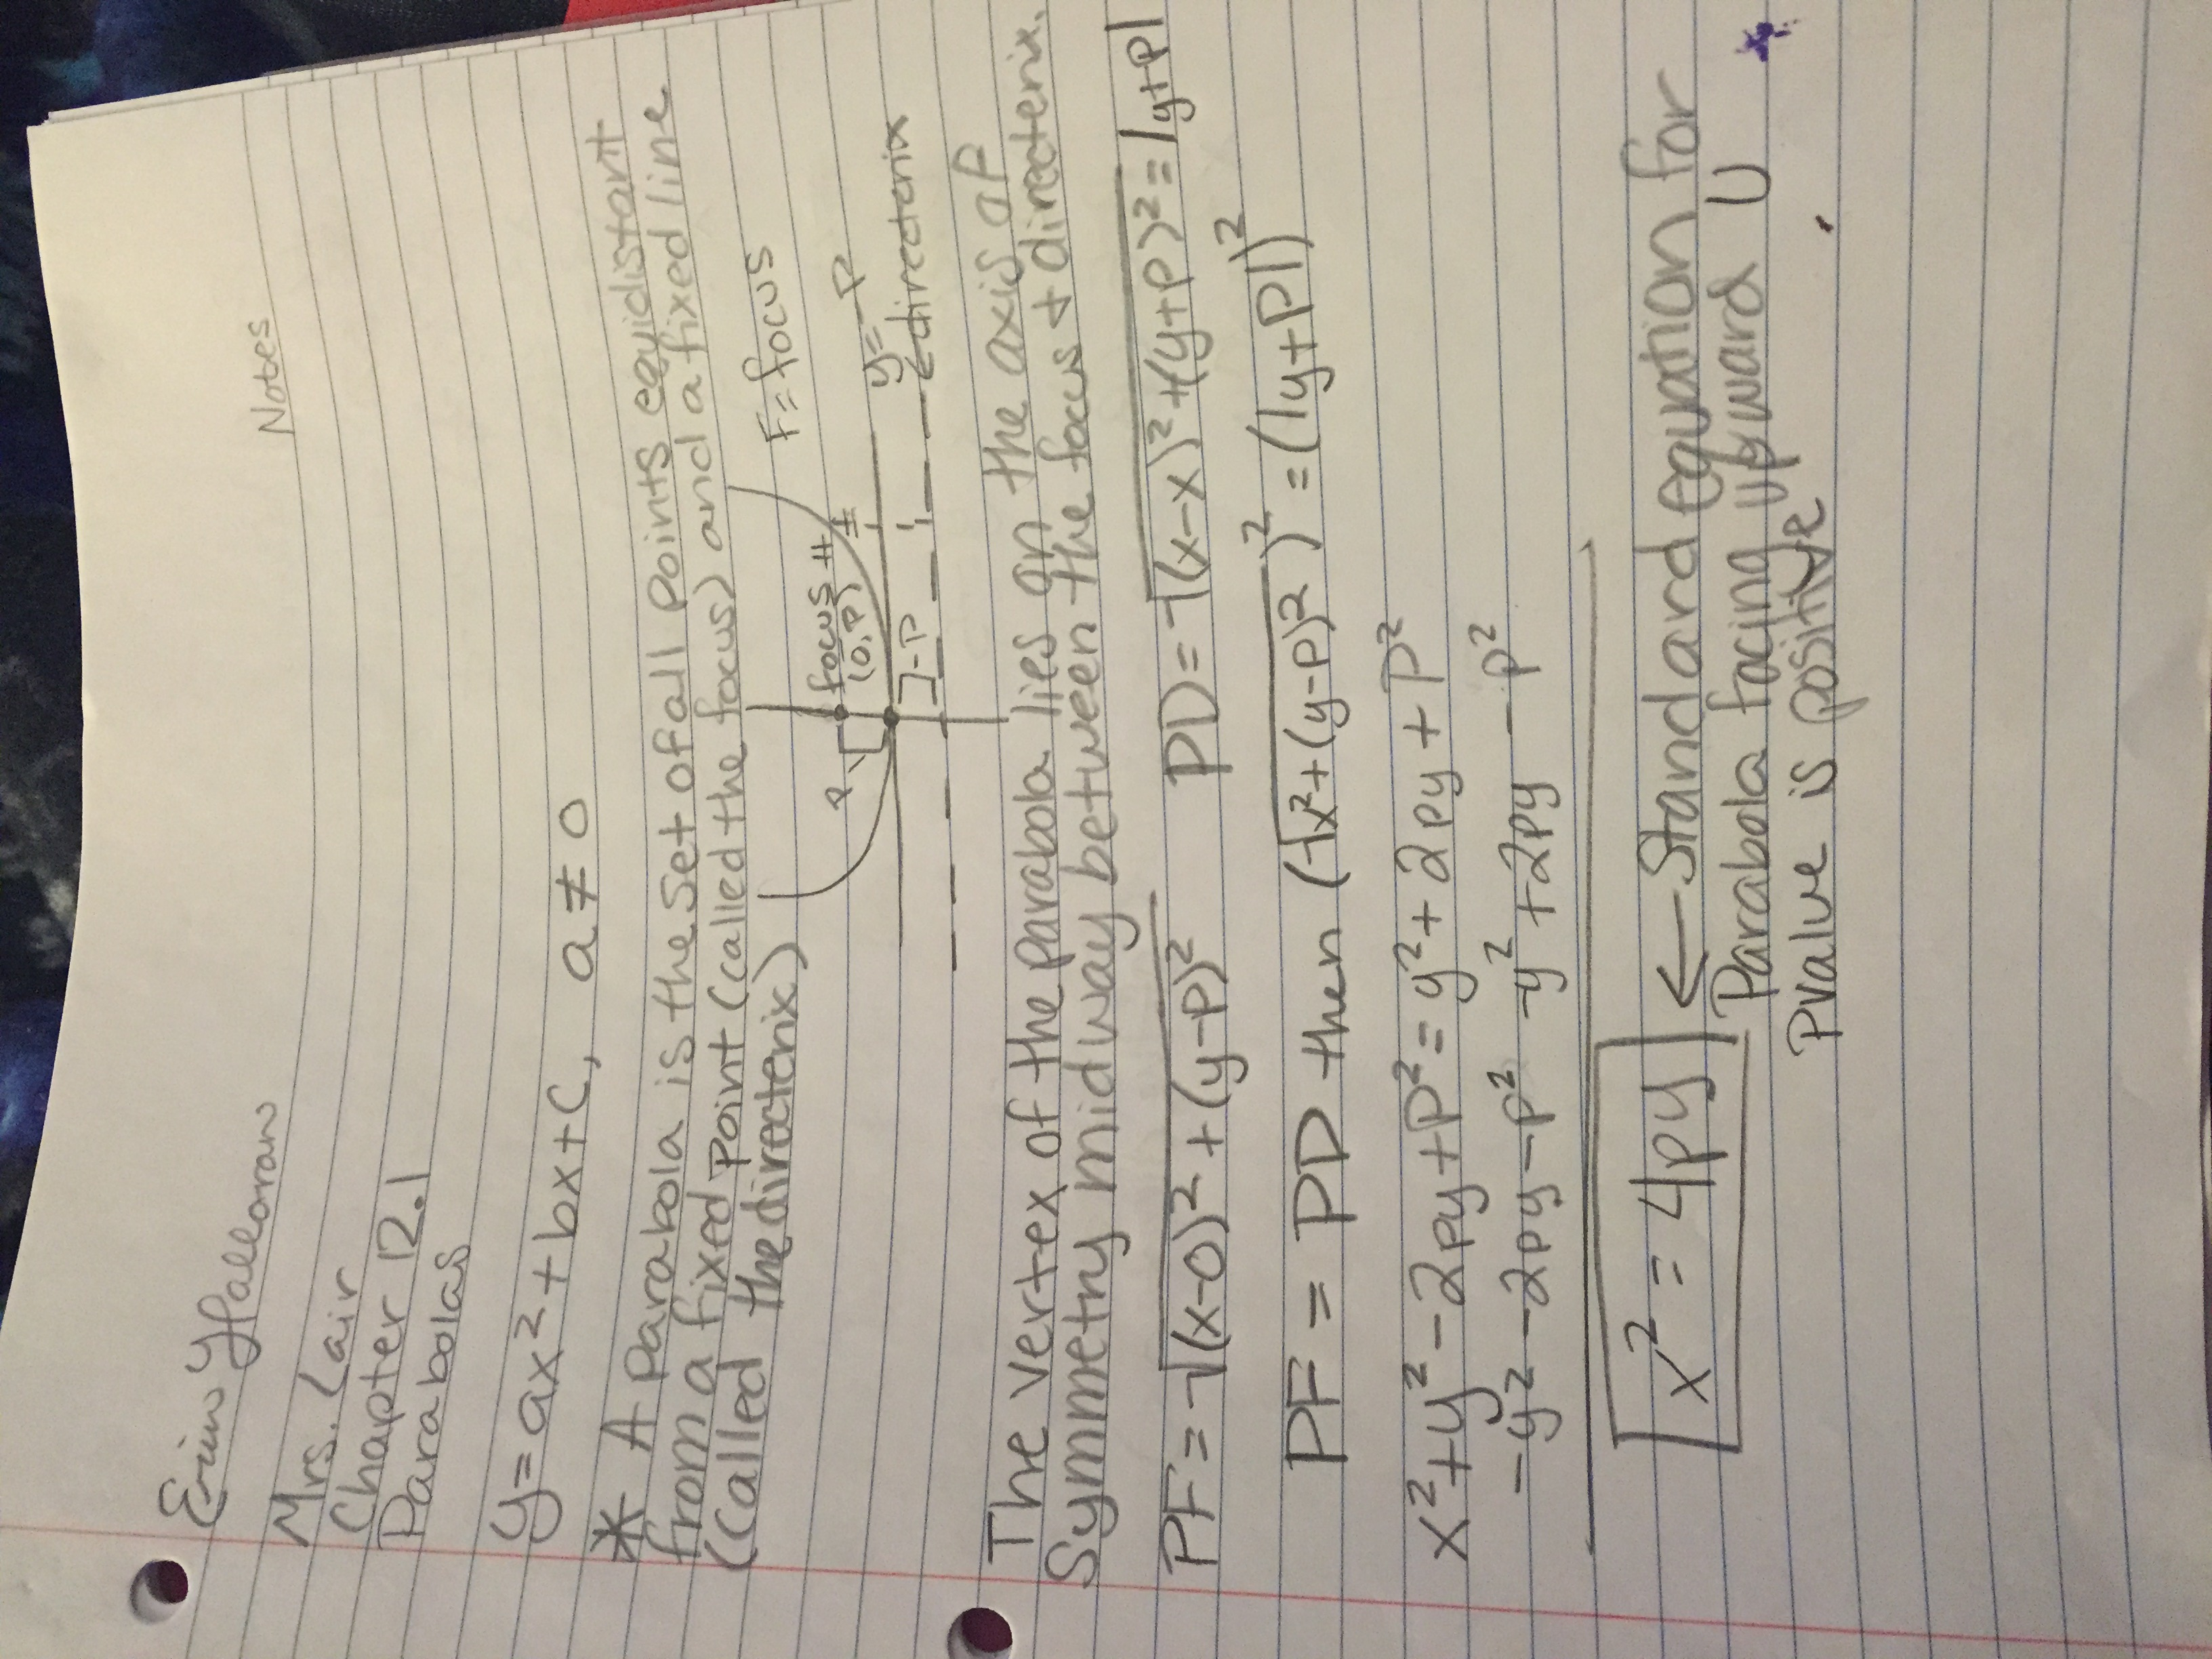 Erin Halloran
Notes
Mrs. Lair
Chapter 12.1
Parabolas
y = ax² + bx + c, a ≠ 0
* A Parabola is the set of all points equidistant
from a fixed point (called the focus) and a fixed line
(called the directerix)
F = focus
focus
(0, P)
P
y = -P
]-P
← directerix
The vertex of the parabola lies on the axis of
Symmetry midway between the focus + directerix.
PF = √(x-0)² + (y-P)² PD = √(x-x)² + (y+P)² = |y+P|
PF = PD then (√x² + (y-P)²)² = (|y+P|)²
x² + y² - 2py + P² = y² + 2py + P²
-y² -2py -P² -y² +2py -P²
x² = 4py ← Standard equation for
Parabola facing upward U
P value is positive